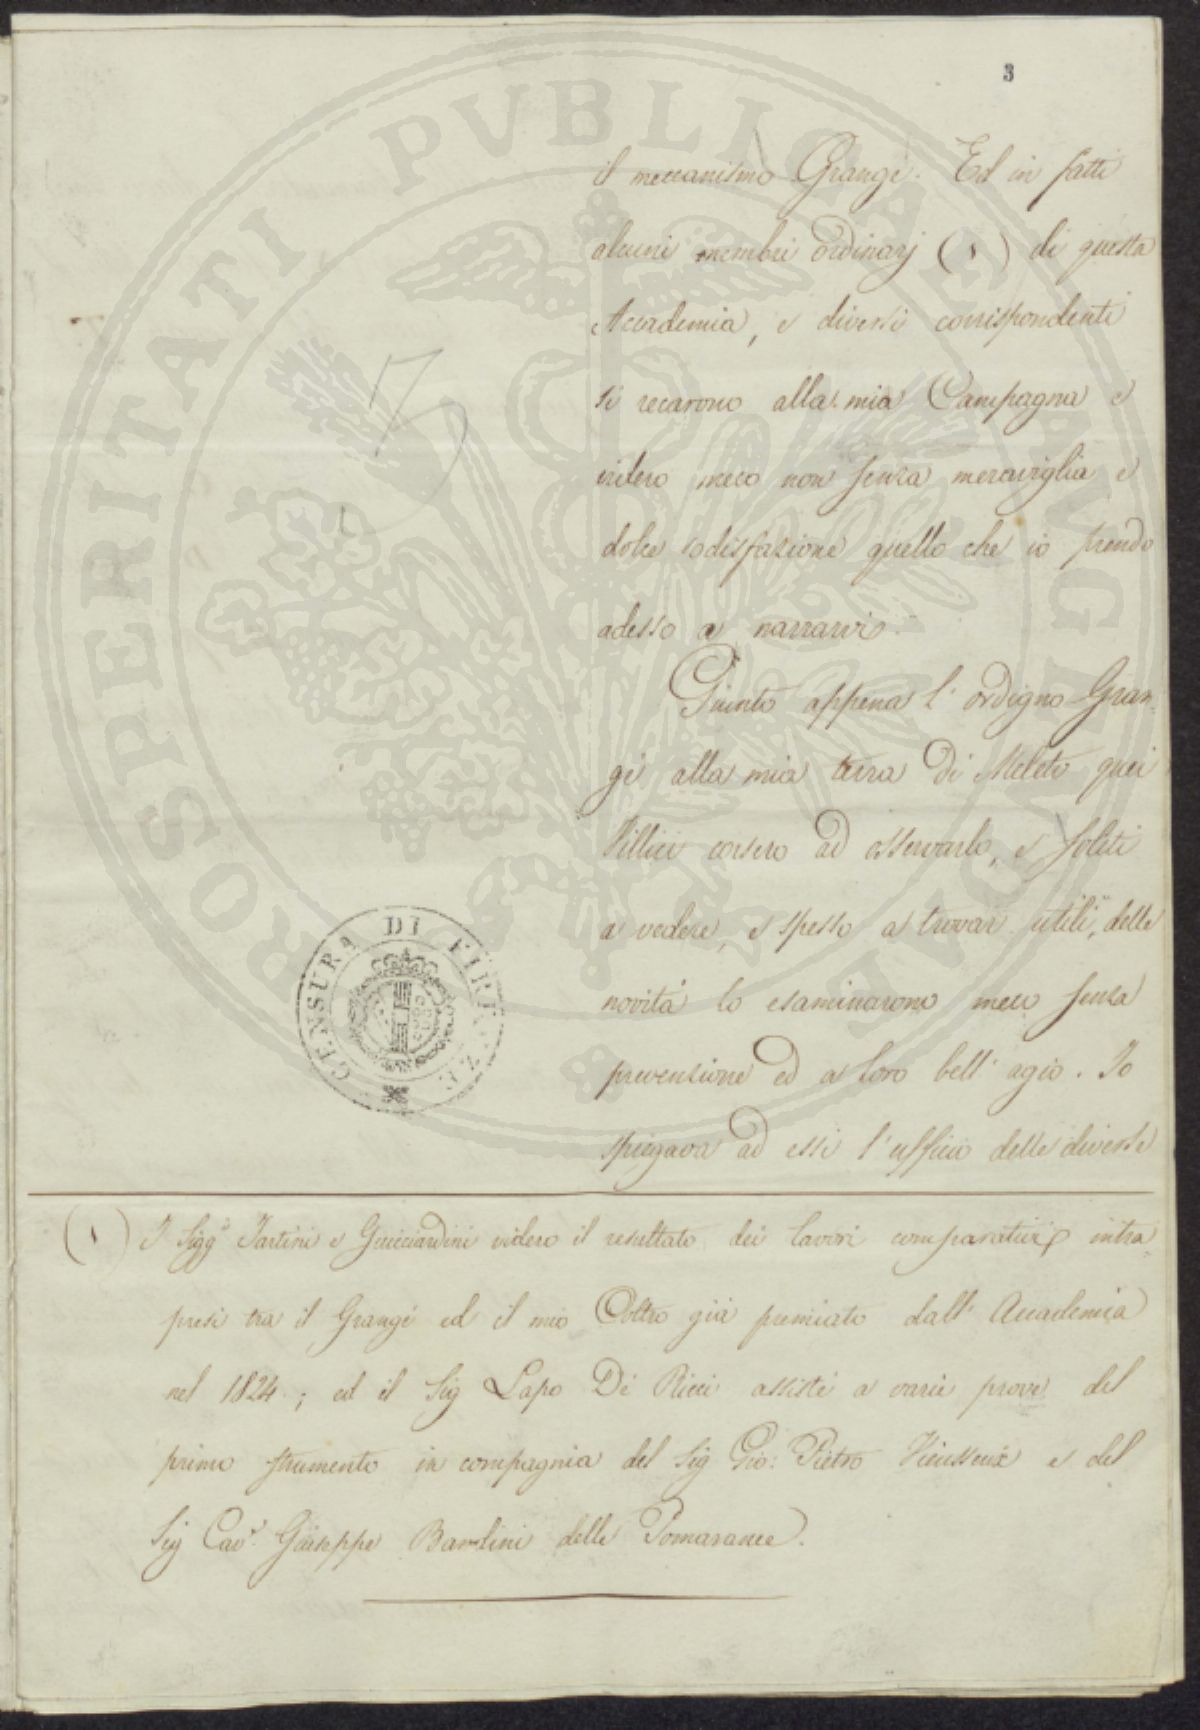 3
il meccanismo Grangé. Ed in fatti
alcuni membri ordinarj (1) di questa
Accademia, e diversi corrispondenti
si recarono alla mia Campagna e
videro meco non senza meraviglia e
dolce sodisfazione quello che io prendo
adesso a narrarvi.
Giunto appena l'ordigno Gran-
gé alla mia terra di Meleto quei
Villici corsero ad osservarlo, e soliti
a vedere, e spesso a trovar utili, delle
novità lo esaminarono meco senza
prevenzione ed a loro bell'agio. Io
spiegava ad essi l'ufficio delle diverse
CENSURA DI FIRENZE
(1) I Sigg.i Tartini e Guicciardini videro il resultato dei lavori comparativi intra-
presi tra il Grangé ed il mio Coltro già premiato dall'Accademia
nel 1824.; ed il Sig Lapo De Ricci assisté a varie prove del
primo strumento in compagnia del Sig Gio: Pietro Vieusseux e del
Sig Cav.e Giuseppe Bardini delle Pomarance.
PROSPERITATI PVBLICAE AVGENDAE